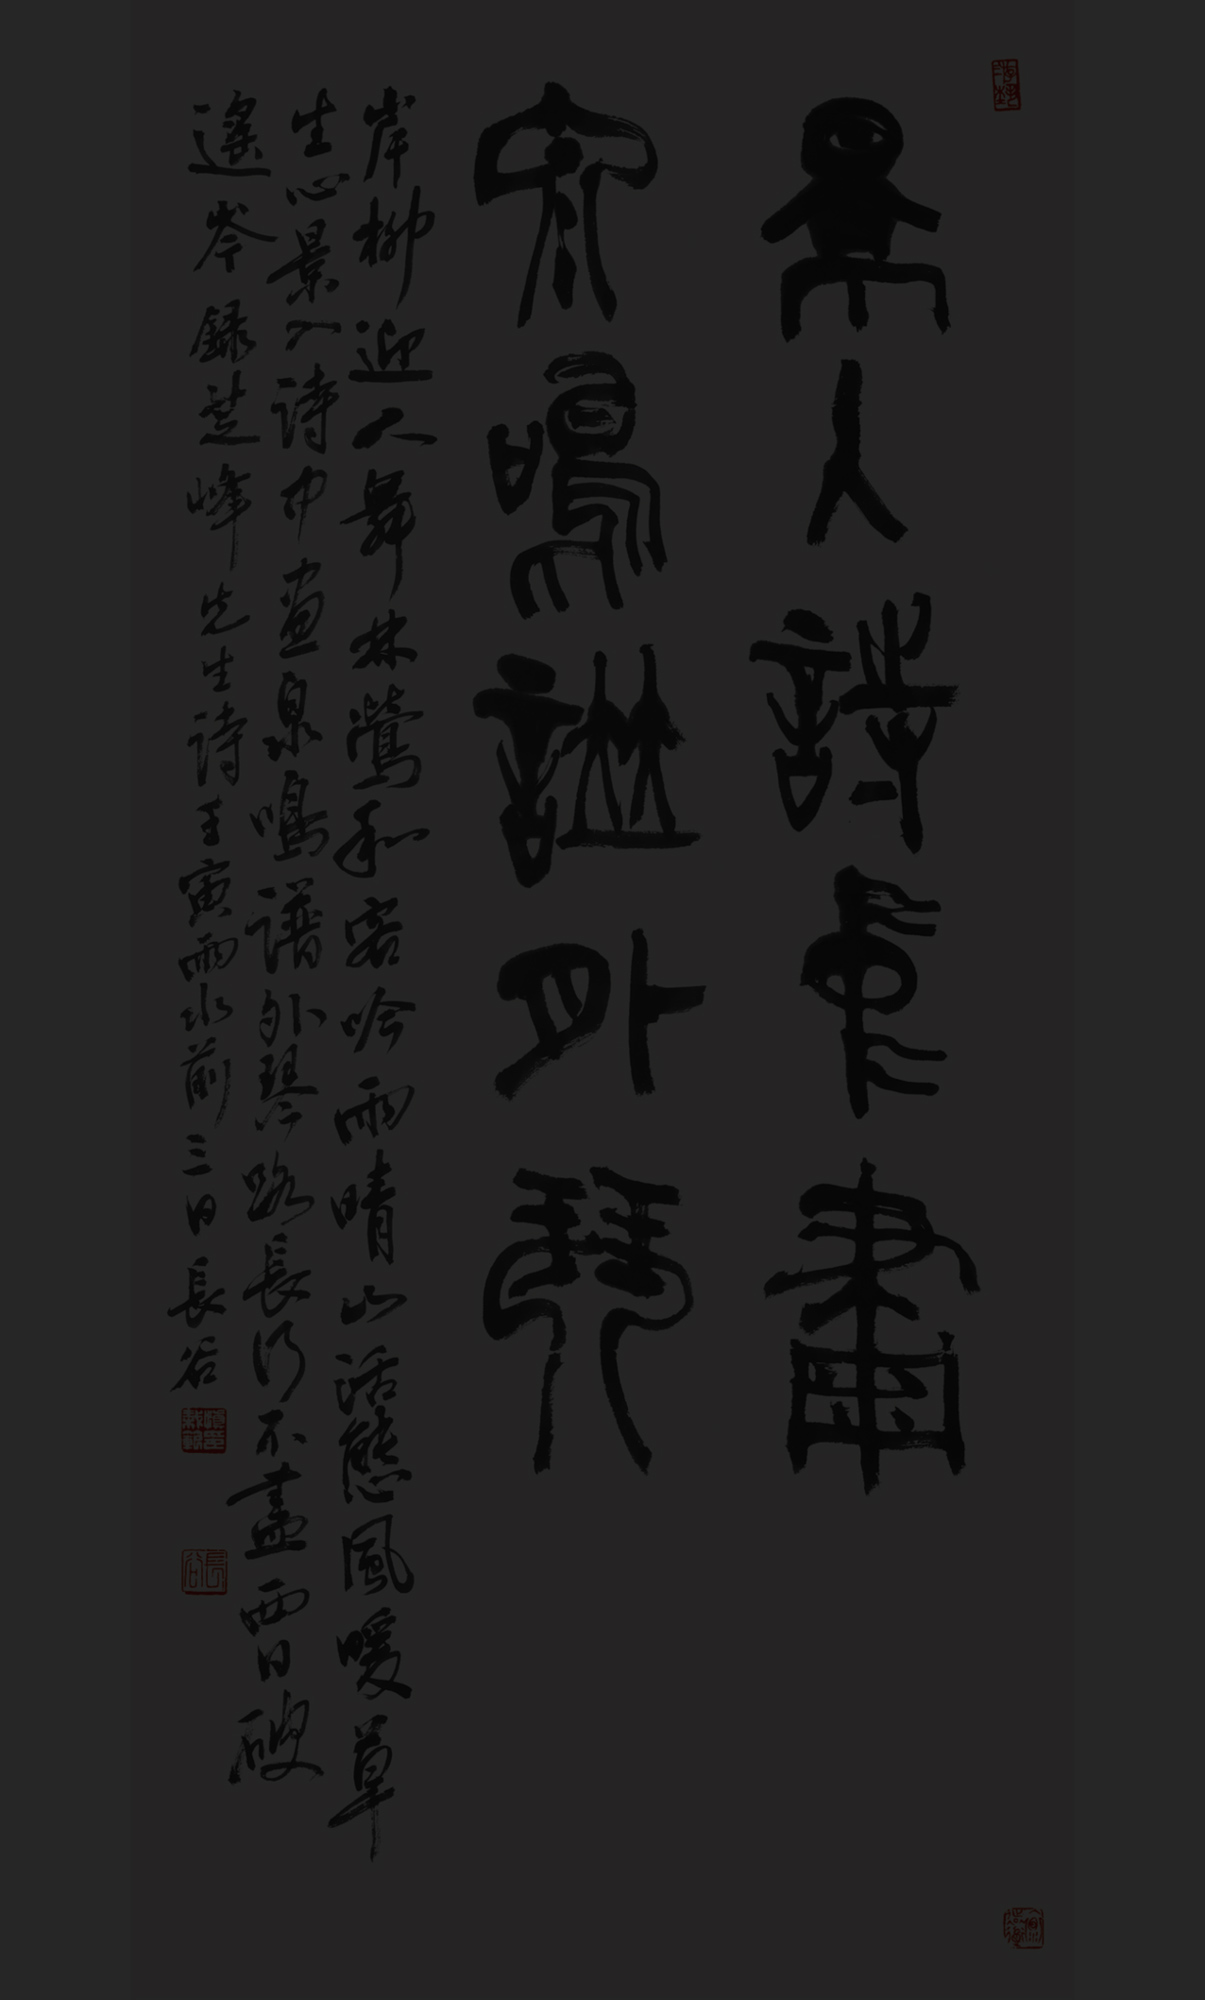 景人詩中畫
泉鳴譜外琴
岸柳迎人舞林莺和客吟雨晴山活態風暖草
生心景入诗中畫泉鳴谱外琴路長行不盡西日破
遥岑録楚峰先生诗壬寅雨水前三日長谷
長谷